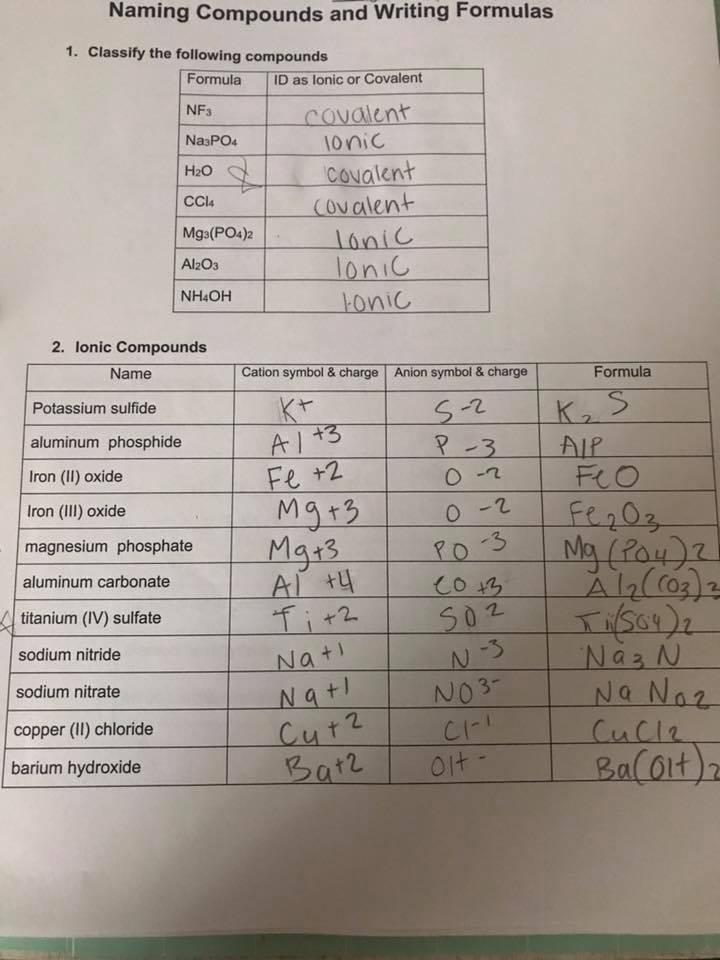 Naming Compounds and Writing Formulas
1. Classify the following compounds
Formula ID as Ionic or Covalent
NF3 covalent
Na3PO4 Ionic
H2O covalent
CCl4 covalent
Mg3(PO4)2 Ionic
Al2O3 Ionic
NH4OH Ionic
2. Ionic Compounds
Name Cation symbol & charge Anion symbol & charge Formula
Potassium sulfide K+ S-2 K2S
aluminum phosphide Al+3 P-3 AlP
Iron (II) oxide Fe+2 O-2 FeO
Iron (III) oxide Mg+3 O-2 Fe2O3
magnesium phosphate Mg+3 PO-3 Mg(PO4)2
aluminum carbonate Al+4 CO+3 Al2(CO3)3
titanium (IV) sulfate Ti+2 SO2 Ti(SO4)2
sodium nitride Na+1 N-3 Na3N
sodium nitrate Na+1 NO3- NaNO2
copper (II) chloride Cu+2 Cl-1 CuCl2
barium hydroxide Ba+2 OH- Ba(OH)2